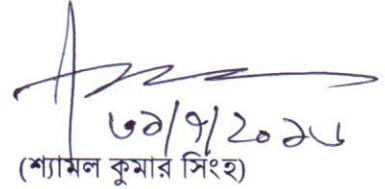 ৩১/৭/২০১৬
(শ্যামল কুমার সিংহ)